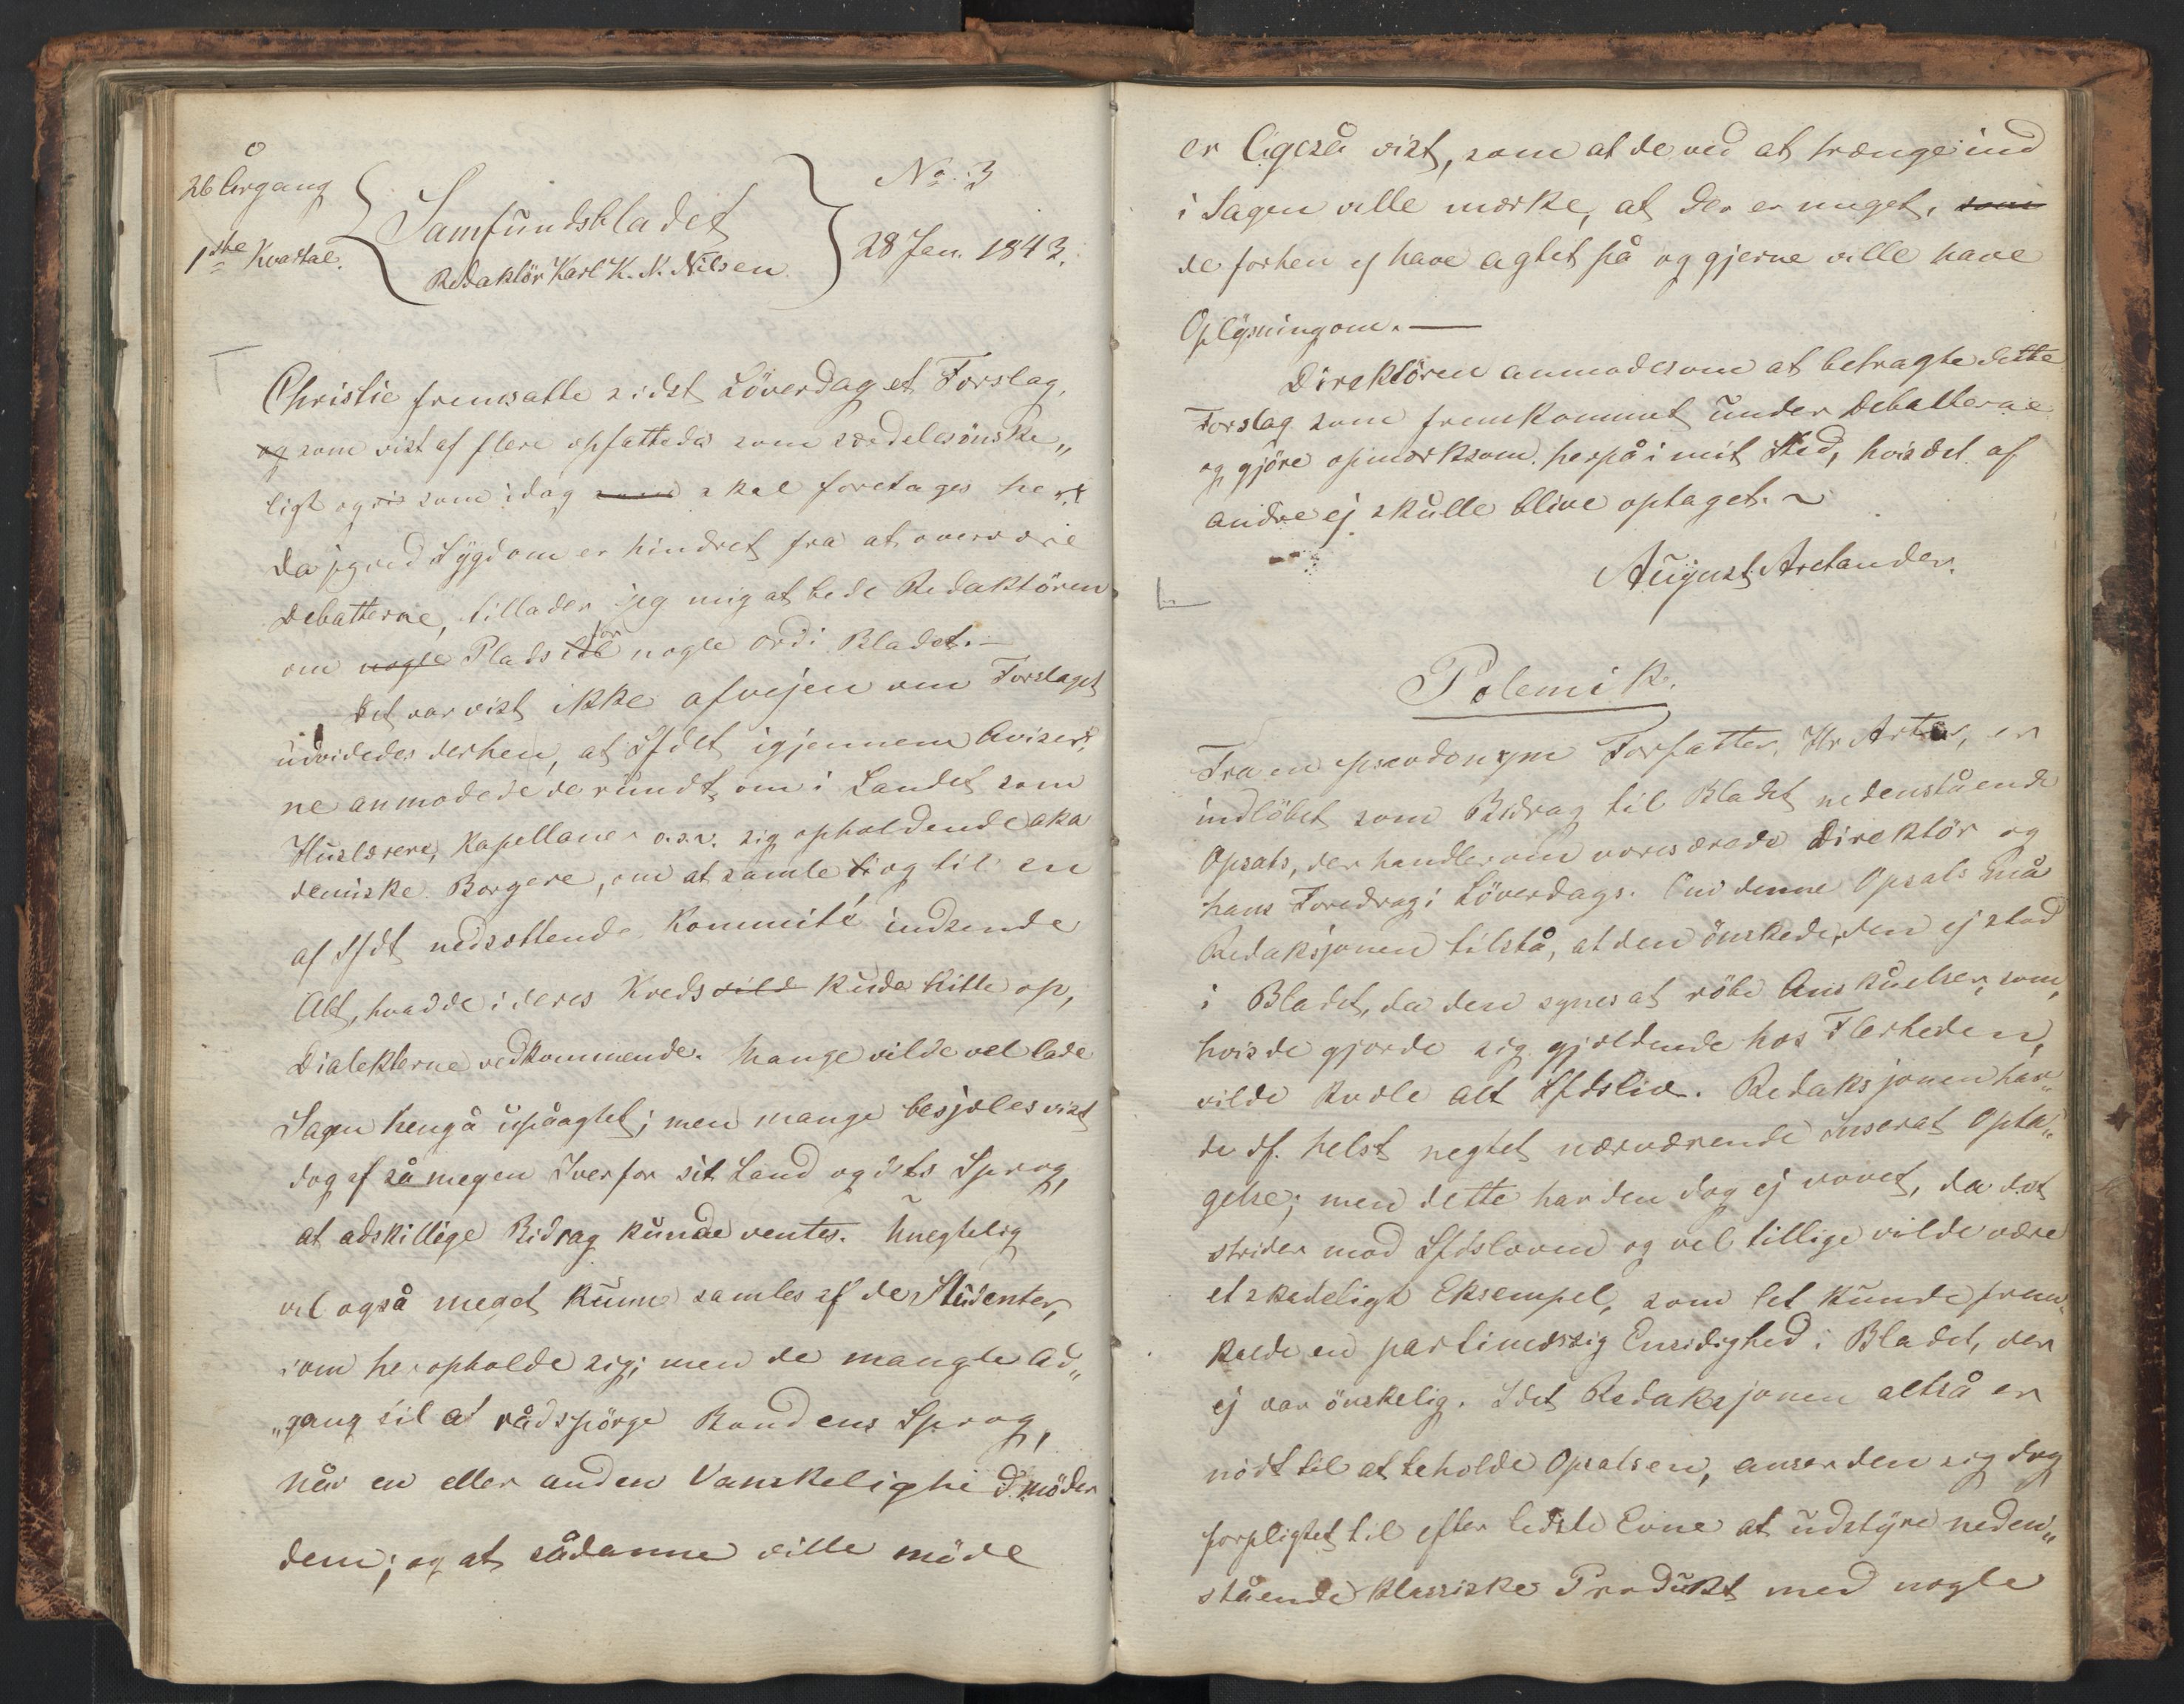 26 Årgang
1ste Kvartal.
Samfundsbladet
Redaktör Karl K. N. Nilsen.
No. 3
28 Jan. 1843.
Christie fremsatte sidst Löverdag et Forslag,
og som vist af flere opfattedes som særdeles önske„
ligt og som idag skal foretages her.
Da jeg ved Sygdom er hindret fra at overvære
Debatterne, tillader jeg mig at bede Redaktören
om nogle Plads til for nogle ord i Bladet.—
Det var vist ikke afvejen om Forslaget
udvidedes derhen, at Sfdet igjennem Aviser„
ne anmodede de rundt om i Landet som
Huslærere, Kapellaner o.s.v. sig opholdende aka
demiske Borgere, om at samle og til en
af Sfdt nedsættende Kommité indsende
Alt, hvad de i deres Kreds vild kude hitte op,
Dialekterne vedkommende. Mange vilde vel lade
Sagen hengå upåagtet; men mange besjæles vist
dog af så megen Iver for sit Land og dets Sprog,
at adskillige Bidrag kunde ventes. Unegtelig
vil også meget kunne samles af de Studenter,
som her opholde sig; men de mangle Ad„
„gang til at rådspörge Bondens Sprog,
når en eller anden Vanskelighed möder
dem; og at sådanne ville möde
er ligeså vist, som at de ved at trænge ind
i Sagen ville mærke, at der er meget, som
de forhen ej have agtet på og gjerne ville have
Oplysning om.—
Direktören anmodes om at betragte dette
Forslag som fremkommet under Debatterne
og gjöre opmærksom herpå i mit Sted, hvis det af
andre ej skulle blive optaget.~
August Arctander.
Polemik.
Fra en pseudonym Forfatter, Hr. er
indlöbet som Bidrag til Bladet nedenstående
Opsats, der handler om vores ærede Direktör og
hans Foredrag i Löverdags. Om denne Opsats må
Redaksjonen tilstå, at den önskede, den ej stod
i Bladet, da den synes at röbe Anskuelser, som,
hvis de gjorde sig gjældende hos Flerheden,
vilde kvæle alt Sfdsliv. Redaksjonen hav„
de df. helst negtet nærværende Inserat Opta„
gelse; men dette har den dog ej vovet, da det
strider mod Sfdsloven og vel tillige vilde være
et skadeligt Eksempel, som let kunde frem„
kalde en partimæssig Ensidighed i Bladet, der
ej var önskelig. Idet Redaksjonen altså er
nödt til at beholde Opsatsen, anser den sig dog
forpligtet til efter bedste Evne at udstyre neden„
stående klassiske Produkt med nogle